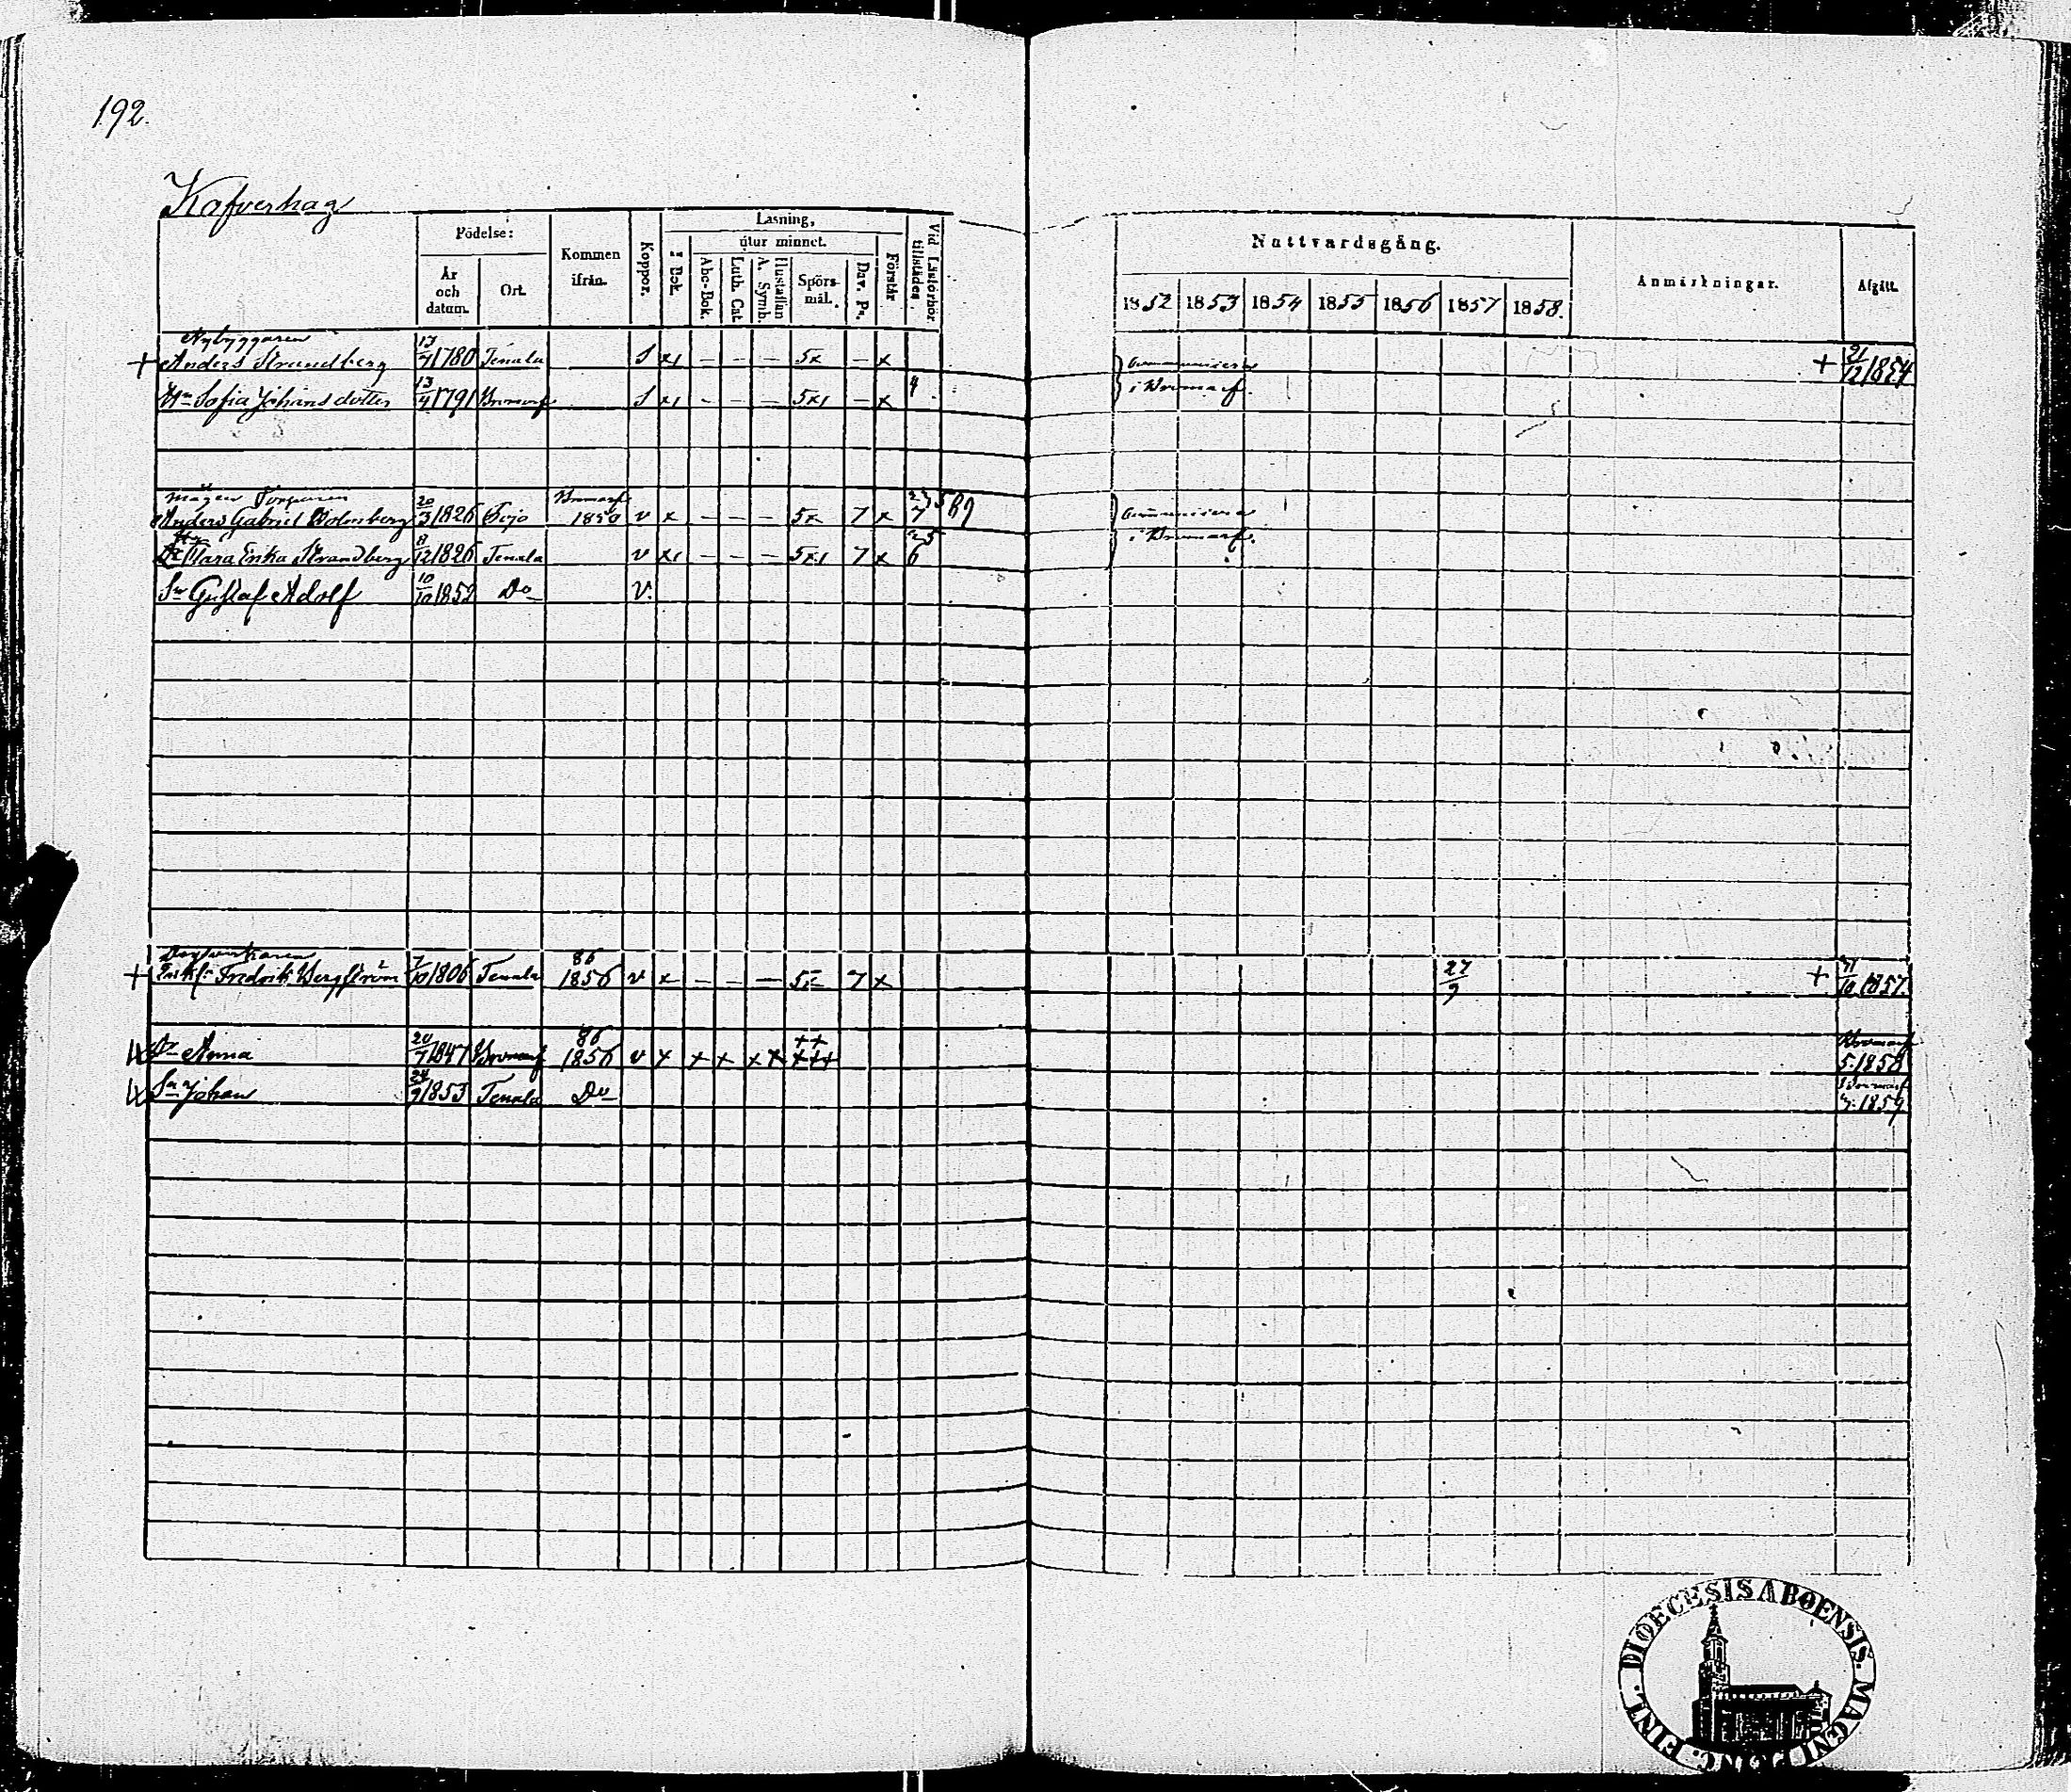 192.
Kafverhag
Födelse:
År och datum.
Ort.
Kommen ifrån.
Koppor.
Läsning,
i Bok.
utur minnet.
Abc-Bok.
Luth. Cat.
Hustaflan A. Symb.
Spörsmål.
Dav. Ps.
Förstår
Vid Läsförhör tillstädes.
Nattvardsgång.
1852 1853 1854 1855 1856 1857 1858.
Anmärkningar.
Afgått.
Nybyggaren
+ Anders Strandberg 13/7 1780 Tenala S x1 – – – 5x – x + 21/12 1854
Hu Sofia Johansdotter 13/4 1791 Bromarf S x1 – – – 5x1 – x 4
Communicera
i Bromarf.
Mågen
Anders Gabriel Holmberg 20/3 1826 Bromarf 1850 v x – – – 5x 7 x
Hu Clara Erika Strandberg 8/12 1826 Tenala v x1 – – – 5x1 7 x 25 6
Communicera
i Bromarf.
Sn Gustaf Adolf 10/10 1852 Do v.
+ Fredrik Bergström 7/10 1806 Tenala 86 1856 v x – – – 5x 7 x 27/9 + 1857.
Dr Anna 20/7 1847 Bromarf 86 1856 v x + + x x ++ +++ Bromarf 5. 1858
Sn Johan 24/9 1853 Tenala Do Bromarf 1859
DIOECESIS ABOENSIS. MAGNI DUC. FINL.